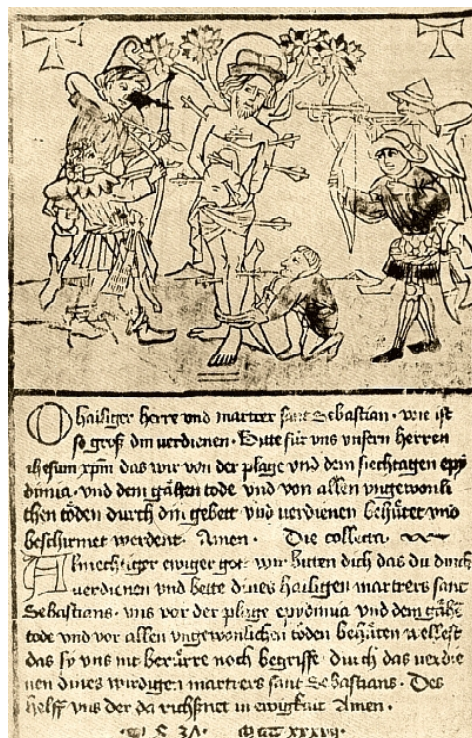 O hailiger herre vnd martrer sant Sebastian · wie ist
so groß din verdienen · Bitte für vns vnsern herren
ihesum xpm̄ das wir von der plage vnd dem siechtagen epy
dimia · vnd dem gähen tode vnd von allen vngewonli
chen töden durch din gebett vnd verdienen behütet vnd
beschirmet werdent · Amen · Die collecta
Almechtiger ewiger got · wir bitten dich das du durch
verdienen vnd bette dines hailigen martrers sant
Sebastians · vns vor der plage epydimia vnd dem gähē
tode vnd vor allen vngewonlichen töden behüten wellest
das sy vns nit berürre noch begriffe · durch das verdie
nen dines wirdigen martrers sant Sebastians · Des
helff vns der da richsnet in ewigkait Amen ·